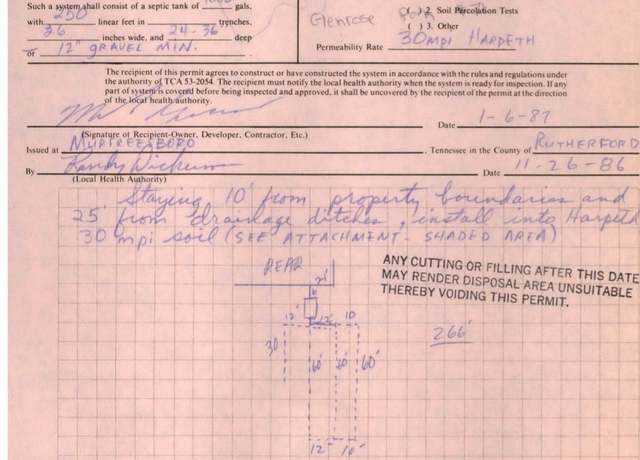 Such a system shall consist of a septic tank of 1000 gals.
with 250 linear feet in trenches,
36 inches wide, and 24-36" deep
or 12" GRAVEL MIN.
Glenrose
( ) 2. Soil Percolation Tests
( ) 3. Other
Permeability Rate 30mpi HARPETH
The recipient of this permit agrees to construct or have constructed the system in accordance with the rules and regulations under
the authority of TCA 53-2054. The recipient must notify the local health authority when the system is ready for inspection. If any
part of system is covered before being inspected and approved, it shall be uncovered by the recipient of the permit at the direction
of the local health authority.
Date 1-6-87
(Signature of Recipient-Owner, Developer, Contractor, Etc.)
Issued at MURFREESBORO, Tennessee in the County of RUTHERFORD
By Date 11-26-86
(Local Health Authority)
Staying 10' from property boundaries and
25' from drainage ditches, install into Harpeth
30 mpi soil (SEE ATTACHMENT - SHADED AREA)
REAR
ANY CUTTING OR FILLING AFTER THIS DATE
MAY RENDER DISPOSAL AREA UNSUITABLE
THEREBY VOIDING THIS PERMIT.
12' 12' 10
266'
30
60' 60'
12' 10'